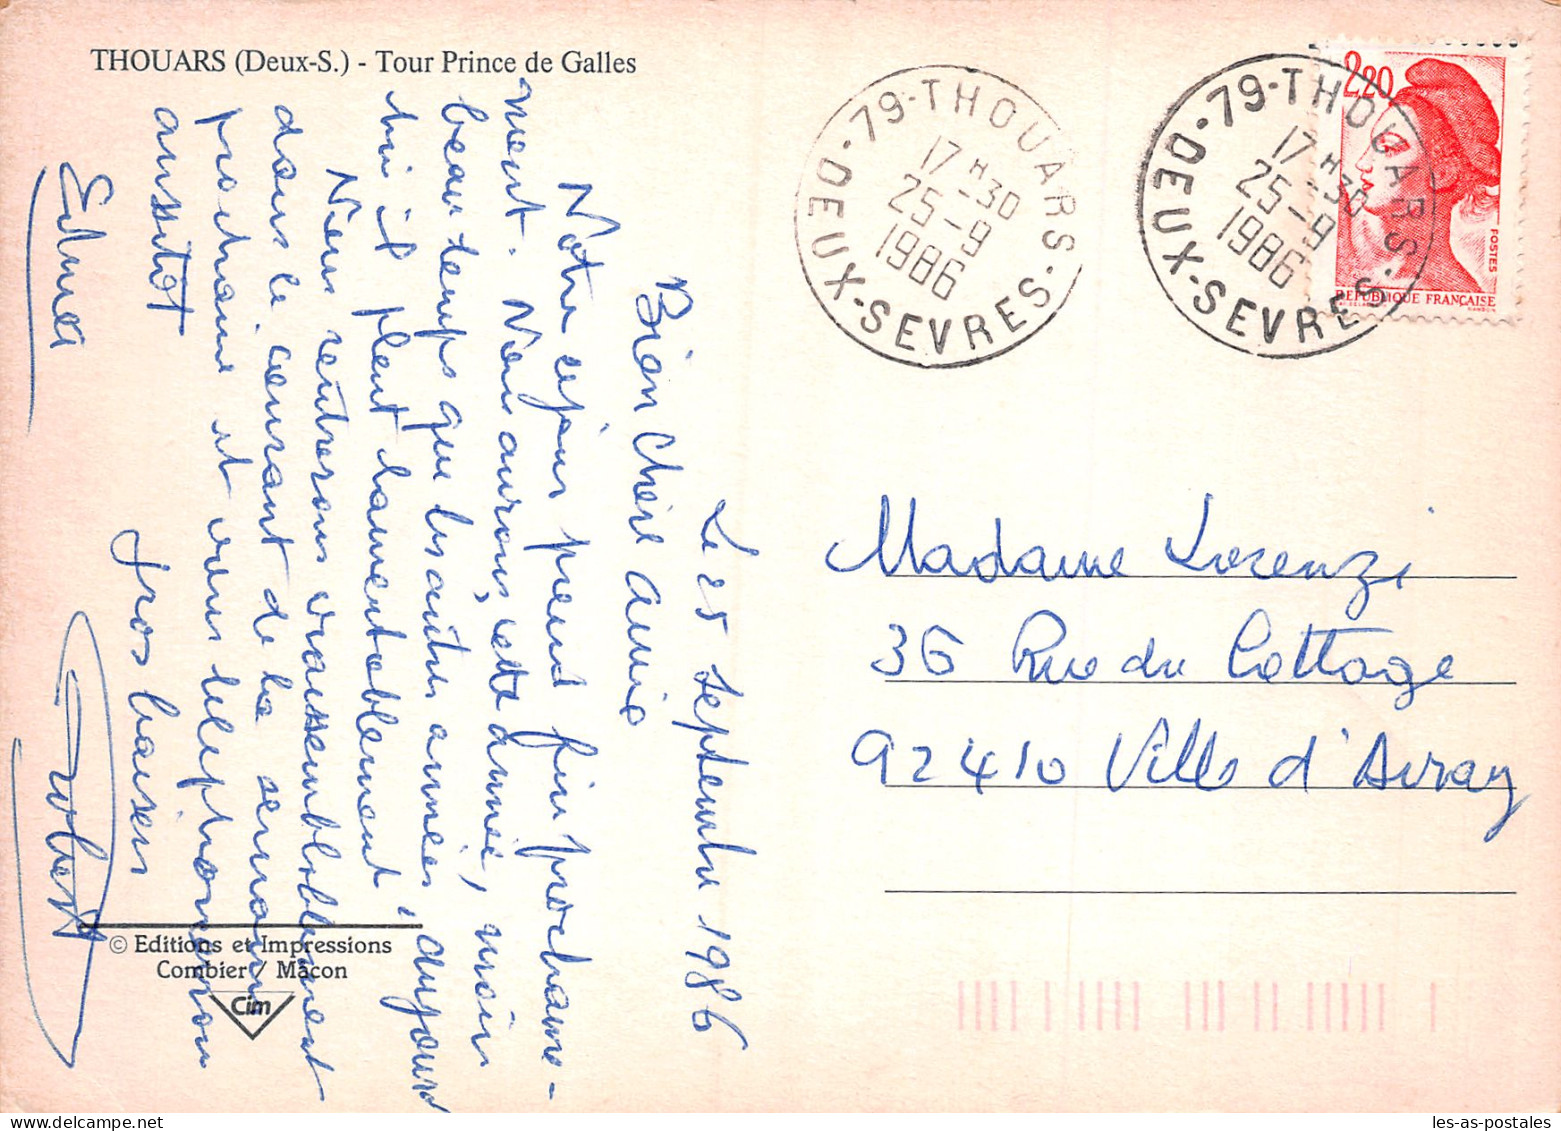 THOUARS (Deux-S.) - Tour Prince de Galles
Le 25 septembre 1986
Bien chère Annie
Notre séjour prend fin prochaine-
ment. Nous aurons, cette année, moins
beau temps que les autres années, aujourd'
hui il pleut lamentablement.
Nous rentrerons vraisemblablement
dans le courant de la semaine
prochaine et vous téléphonerons
aussitôt
Gros baisers
Edmée
Robert
© Editions et Impressions
Combier / Mâcon
Cim
79-THOUARS
17H30
25-9
1986
DEUX-SEVRES
79-THOUARS
17H30
25-9
1986
DEUX-SEVRES
2,20
POSTES
REPUBLIQUE FRANÇAISE
Madame Lorenzi
36 Rue du Cottage
92410 Ville d'Avray
les-as-postales